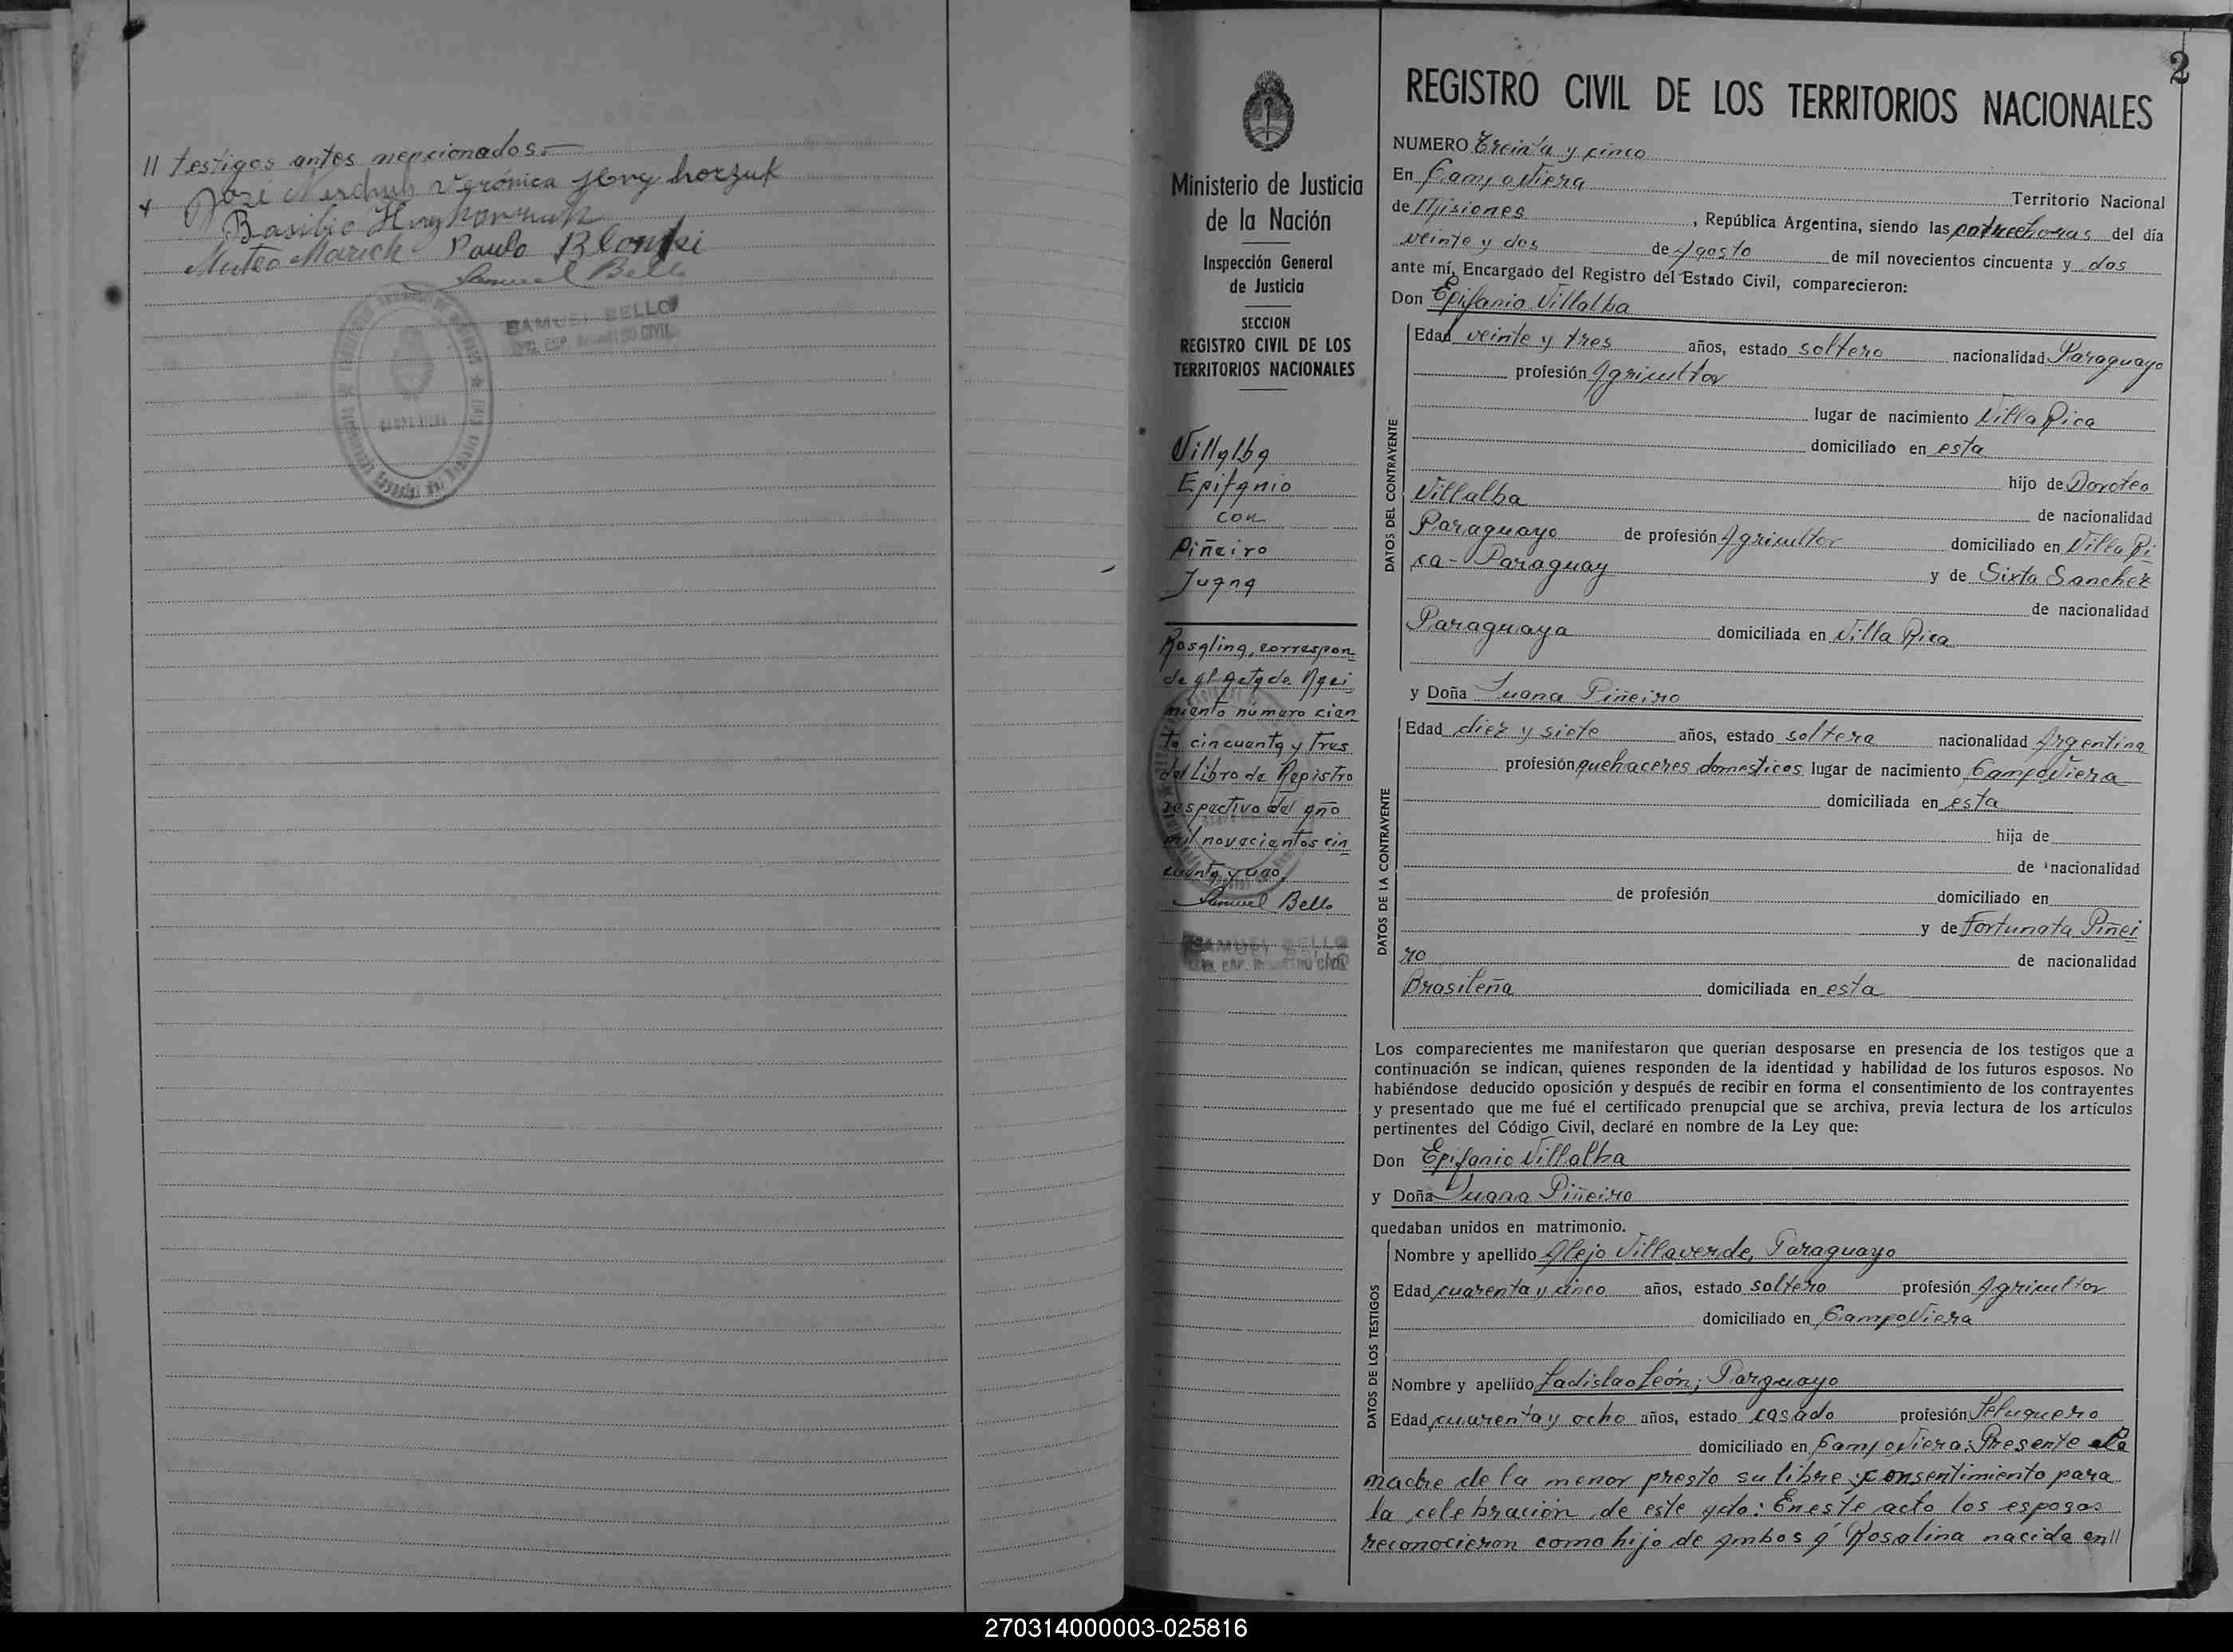 // testigos antes mencionados.-
José Verónica
Basilio
Mateo Marich Paulo
Samuel Bello
SAMUEL BELLO
2
REGISTRO CIVIL DE LOS TERRITORIOS NACIONALES
Ministerio de Justicia
de la Nación
Inspección General
de Justicia
SECCION
REGISTRO CIVIL DE LOS
TERRITORIOS NACIONALES
Villalba
Epifanio
con
Piñeiro
Juana
Rosalina, correspon-
de al acta de Naci-
miento número cien-
to cincuenta y tres
del Libro de Registro
respectivo del año
mil novecientos cin-
cuenta y uno.
Samuel Bello
SAMUEL BELLO
NUMERO Treinta y cinco
En Campo Viera
Territorio Nacional
de Misiones, República Argentina, siendo las catorce horas del día
veinte y dos de Agosto de mil novecientos cincuenta y dos
ante mí, Encargado del Registro del Estado Civil, comparecieron:
Don Epifanio Villalba
DATOS DEL CONTRAYENTE
Edad veinte y tres años, estado soltero nacionalidad Paraguayo
profesión Agricultor
lugar de nacimiento Villa Rica
domiciliado en esta
hijo de Doroteo
Villalba de nacionalidad
Paraguayo de profesión Agricultor domiciliado en Villa Ri
ca - Paraguay y de Sixta Sanchez
de nacionalidad
Paraguaya domiciliada en Villa Rica
y Doña Juana Piñeiro
DATOS DE LA CONTRAYENTE
Edad diez y siete años, estado soltera nacionalidad Argentina
profesión quehaceres domesticos lugar de nacimiento Campo Viera
domiciliada en esta
hija de
de nacionalidad
de profesión domiciliado en
y de Fortunata Piñei
ro de nacionalidad
Brasileña domiciliada en esta
Los comparecientes me manifestaron que querían desposarse en presencia de los testigos que a
continuación se indican, quienes responden de la identidad y habilidad de los futuros esposos. No
habiéndose deducido oposición y después de recibir en forma el consentimiento de los contrayentes
y presentado que me fué el certificado prenupcial que se archiva, previa lectura de los artículos
pertinentes del Código Civil, declaré en nombre de la Ley que:
Don Epifanio Villalba
y Doña Juana Piñeiro
quedaban unidos en matrimonio.
DATOS DE LOS TESTIGOS
Nombre y apellido Alejo Villaverde, Paraguayo
Edad cuarenta y cinco años, estado soltero profesión Agricultor
domiciliado en Campo Viera
Nombre y apellido Ladislao León; Parguayo
Edad cuarenta y ocho años, estado casado profesión Peluquero
domiciliado en Campo Viera: Presente la
madre de la menor presto su libre consentimiento para
la celebración de este acto: En este acto los esposos
reconocieron como hijo de ambos á Rosalina nacida en//
270314000003-025816